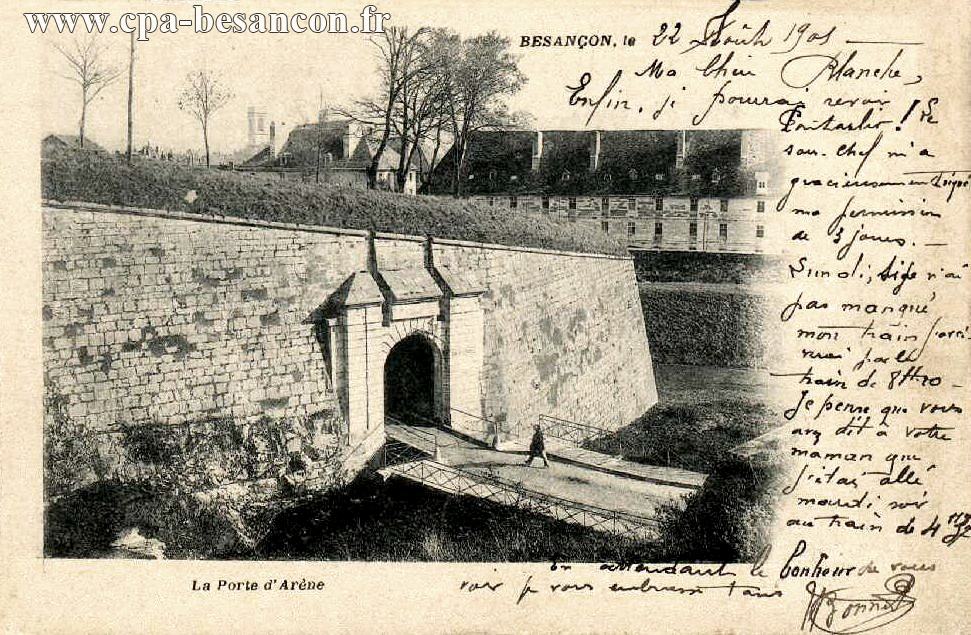 www.cpa-besancon.fr
BESANÇON, le 22 Août 1901
Ma Chère Blanche,
Enfin, je pourrai revoir
Pontarlier! Le
sous-chef m'a
gracieusement signé
ma permission
de 3 jours. —
Lundi, si je n'ai
pas manqué
mon train j'arri
verai par le
train de 8h20 —
Je pense que vous
avez dit à votre
maman que
j'étais allé
mardi voir
au train de 4h32
En attendant le bonheur de vous
voir je vous embrasse tous
Bonnet
La Porte d'Arène